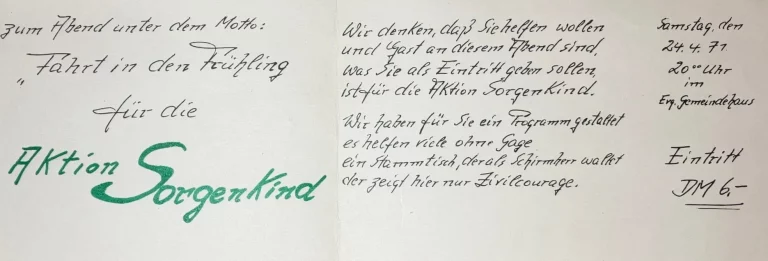 zum Abend unter dem Motto:
"Fahrt in den Frühling
für die
Aktion Sorgenkind
Wir denken, daß Sie helfen wollen
und Gast an diesem Abend sind,
was Sie als Eintritt geben sollen,
ist für die Aktion Sorgenkind.
Wir haben für Sie ein Programm gestaltet
es helfen viele ohne Gage
ein Stammtisch, der als Schirmherr waltet
der zeigt hier nur Zivilcourage.
Samstag, den
24.4.71
20⁰⁰ Uhr
im
Evg. Gemeindehaus
Eintritt
DM 6,-